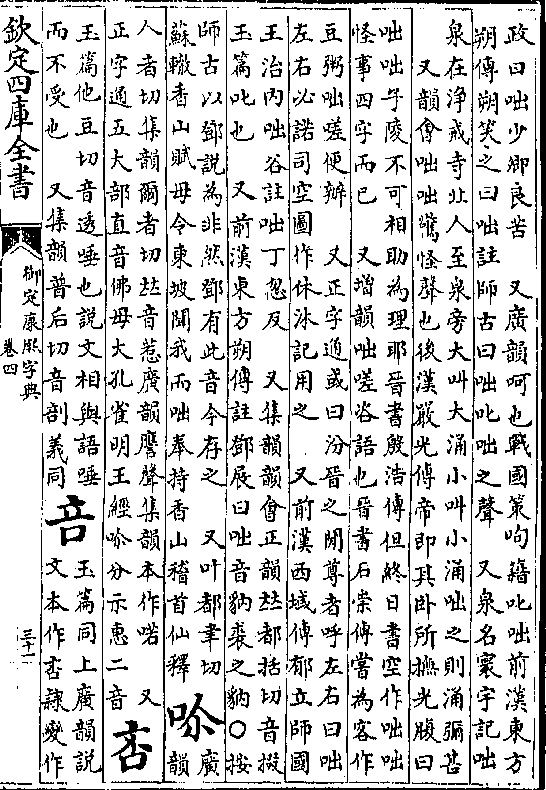 政曰咄少卿良苦　又廣韻呵也戰國策呴籍叱咄前漢東方
朔傳朔笑之曰咄註師古曰咄叱咄之聲　又泉名寰宇記咄
泉在浄戒寺北人至泉旁大叫大涌小叫小涌咄之則涌彌甚
又韻會咄咄驚怪聲也後漢嚴光傳帝即其卧所撫光腹曰
咄咄子陵不可相助為理耶晉書殷浩傳但終日書空作咄咄
怪事四字而已　又增韻咄嗟咨語也晉書石崇傳嘗為客作
豆粥咄嗟便辦　又正字通或曰汾晉之間尊者呼左右曰咄
左右必諾司空圖作休休記用之　又前漢西域傳郁立師國
王治內咄谷註咄丁忽反　又集韻韻會正韻𠀤都括切音掇
玉篇叱也　又前漢東方朔傳註鄧展曰咄音豽裘之豽○按
師古以鄧說為非然鄧有此音今存之　又叶都聿切
蘇轍香山賦毋令東坡聞我而咄奉持香山稽首仙釋
㖠
廣韻
人者切集韻爾者切𠀤音惹廣韻譍聲集韻本作喏　又
正字通五大部直音佛母大孔雀明王經㖠分示惠二音
咅
玉篇他豆切音透唾也說文相與語唾
而不受也　又集韻普后切音剖義同
音
玉篇同上廣韻說
文本作咅隷變作
欽定四庫全書
御定康熙字典
卷四
三十一